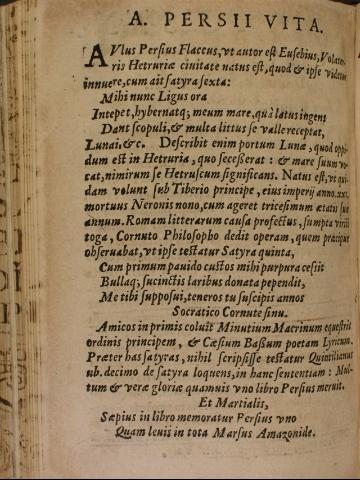 A. PERSII VITA.
AVlus Persius Flaccus, vt autor est Eusebius, Volater
ris Hetruriæ ciuitate natus est, quod & ipse videtur
innuere, cum ait satyra sexta:
Mihi nunc Ligus ora
Intepet, hybernatq; meum mare, quà latus ingens
Dant scopuli, & multa littus se valle receptat,
Lunai, &c. Describit enim portum Lunæ, quod oppi
dum est in Hetruria, quo secesserat: & mare suum vo-
cat, nimirum se Hetruscum significans. Natus est, vt qui
dam volunt sub Tiberio principe, eius imperij anno. xxi.
mortuus Neronis nono, cum ageret tricesimum ætatis suæ
annum. Romam litterarum causa profectus, sumpta virili
toga, Cornuto Philosopho dedit operam, quem præcipuè
obseruabat, vt ipse testatur Satyra quinta,
Cum primum pauido custos mihi purpura cessit
Bullaq; sucinctis laribus donata pependit,
Me tibi supposui, teneros tu suscipis annos
Socratico Cornute sinu.
Amicos in primis coluit Minutium Macrinum equestris
ordinis principem, & Cæsium Bassum poetam Lyricum.
Præter has satyras, nihil scripsisse testatur Quintilianus
lib. decimo de satyra loquens, in hanc sententiam: Mul-
tum & veræ gloriæ quamuis vno libro Persius meruit.
Et Martialis,
Sæpius in libro memoratur Persius vno
Quam leuis in tota Marsus Amazonide.